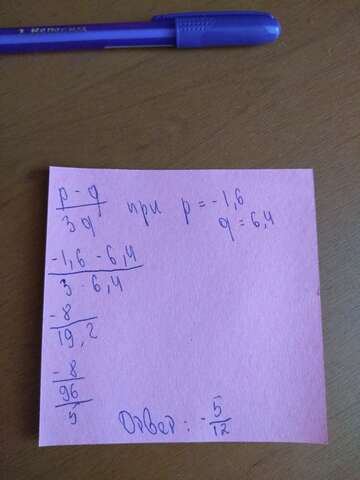 p - q / 3q при p = -1,6
q = 6,4
-1,6 - 6,4 / 3 · 6,4
-8 / 19,2
-8 / 96 / 5
Ответ: - 5/12